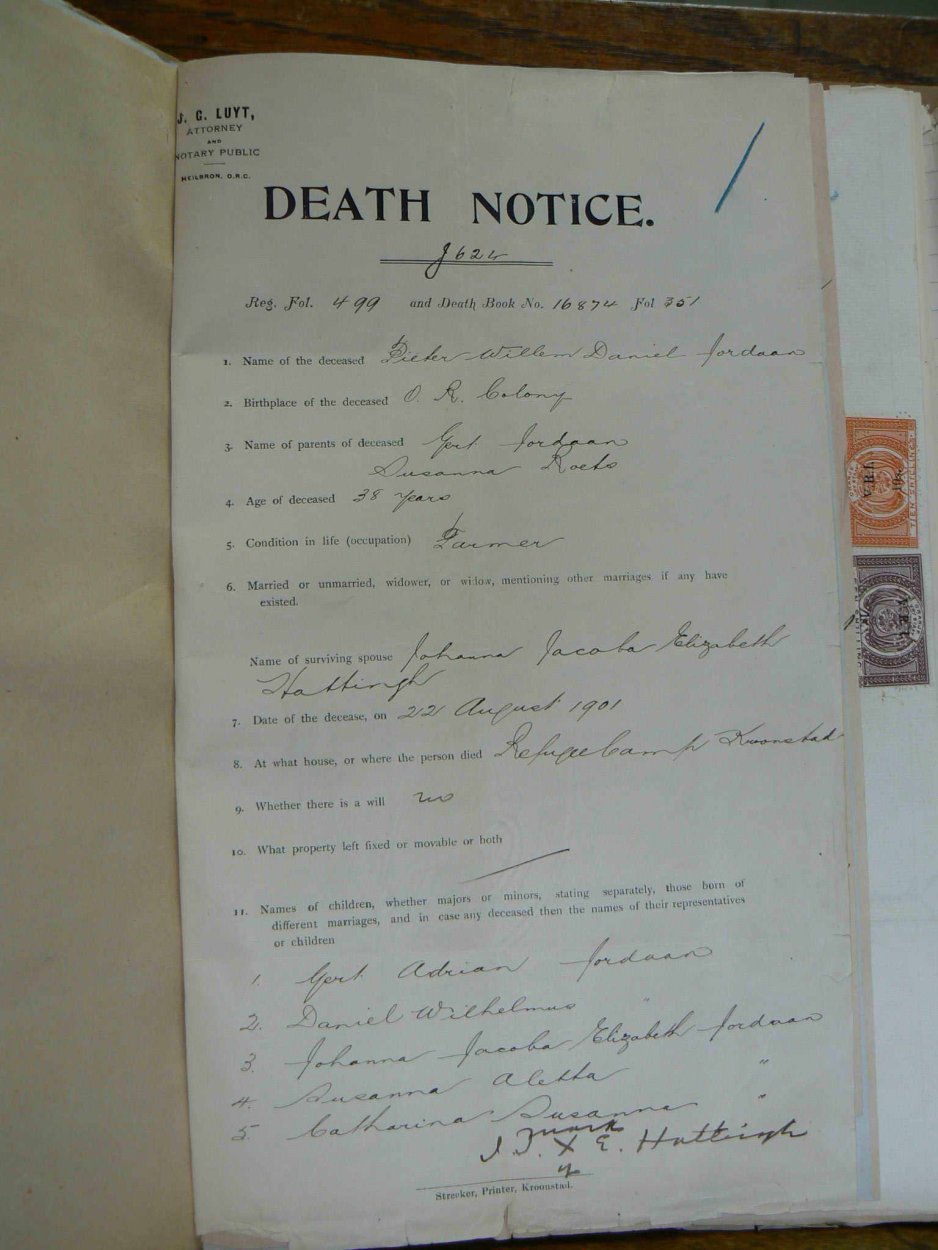 J. G. LUYT,
ATTORNEY
AND
NOTARY PUBLIC
HEILBRON, O.R.C.
DEATH NOTICE.
J 624
Reg. Fol. 499 and Death Book No. 16874 Fol 351
1. Name of the deceased Pieter Willem Daniel Jordaan
2. Birthplace of the deceased O. R. Colony
3. Name of parents of deceased Gert Jordaan
Susanna Roets
4. Age of deceased 38 years
5. Condition in life (occupation) Farmer
6. Married or unmarried, widower, or widow, mentioning other marriages if any have
existed.
Name of surviving spouse Johanna Jacoba Elizabeth
Hattingh
7. Date of the decease, on 22 August 1901
8. At what house, or where the person died Refugee Camp Kroonstad
9. Whether there is a will no
10. What property left fixed or movable or both
11. Names of children, whether majors or minors, stating separately, those born of
different marriages, and in case any deceased then the names of their representatives
or children
1. Gert Adrian Jordaan
2. Daniel Wilhelmus "
3. Johanna Jacoba Elizabeth Jordaan
4. Susanna Aletta "
5. Catharina Susanna "
mark
J. J. X E. Hattingh
of
Strecker, Printer, Kroonstad.
V.R.I.
TIEN SHILLINGS